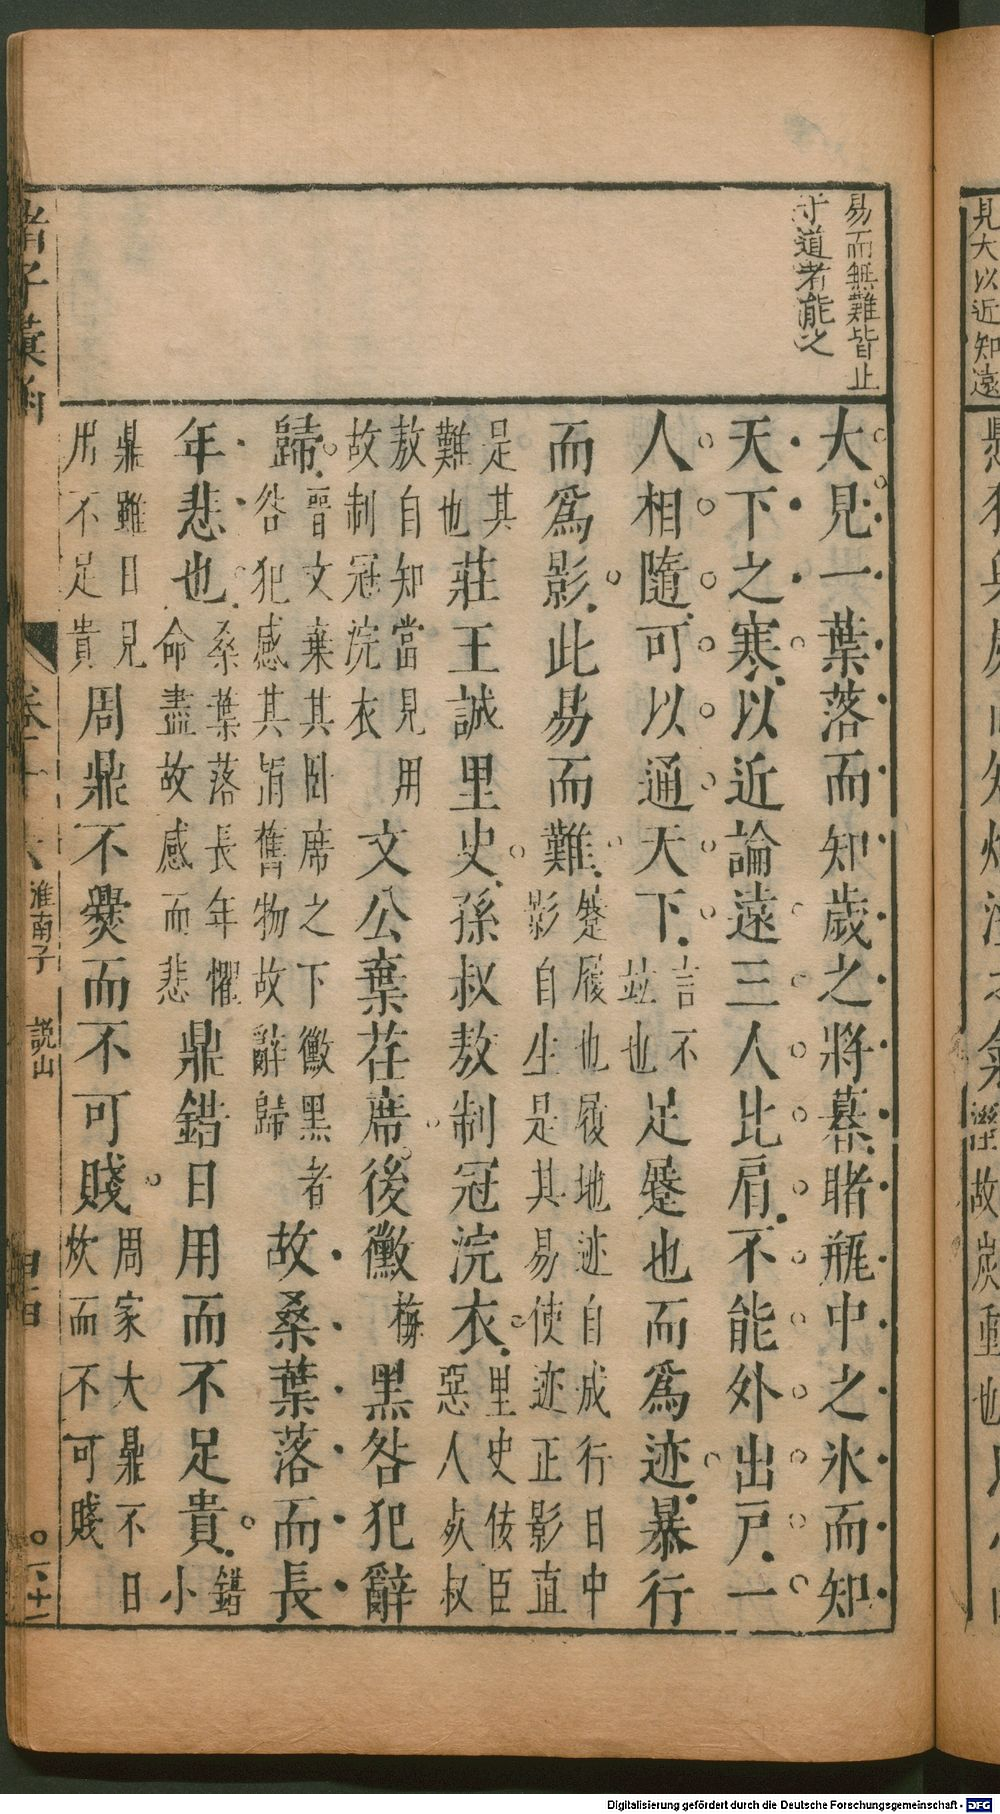 易而無難皆止
于道者能之
大見一葉落而知歲之將暮睹瓶中之氷而知
天下之寒以近論遠三人比肩不能外出戸一
人相隨可以通天下言不
並也足蹙也而爲迹暴行
而爲影此易而難蹙履也履地迹自成行日中
影自生是其易使迹正影直
是其
難也莊王誠里史孫叔敖制冠浣衣里史佞臣
惡人死叔
敖自知當見用
故制冠浣衣文公棄荏席後黴梅黑咎犯辭
歸晉文棄其卧席之下黴黑者
咎犯感其捐舊物故辭歸故桑葉落而長
年悲也桑葉落長年懼
命盡故感而悲鼎錯日用而不足貴錯
小
鼎雖日見
用不足貴周鼎不爨而不可賤周家大鼎不日
炊而不可賤
諸子彙函
淮南子
説山
見大以近知遠
Digitalisierung gefördert durch die Deutsche Forschungsgemeinschaft - DFG